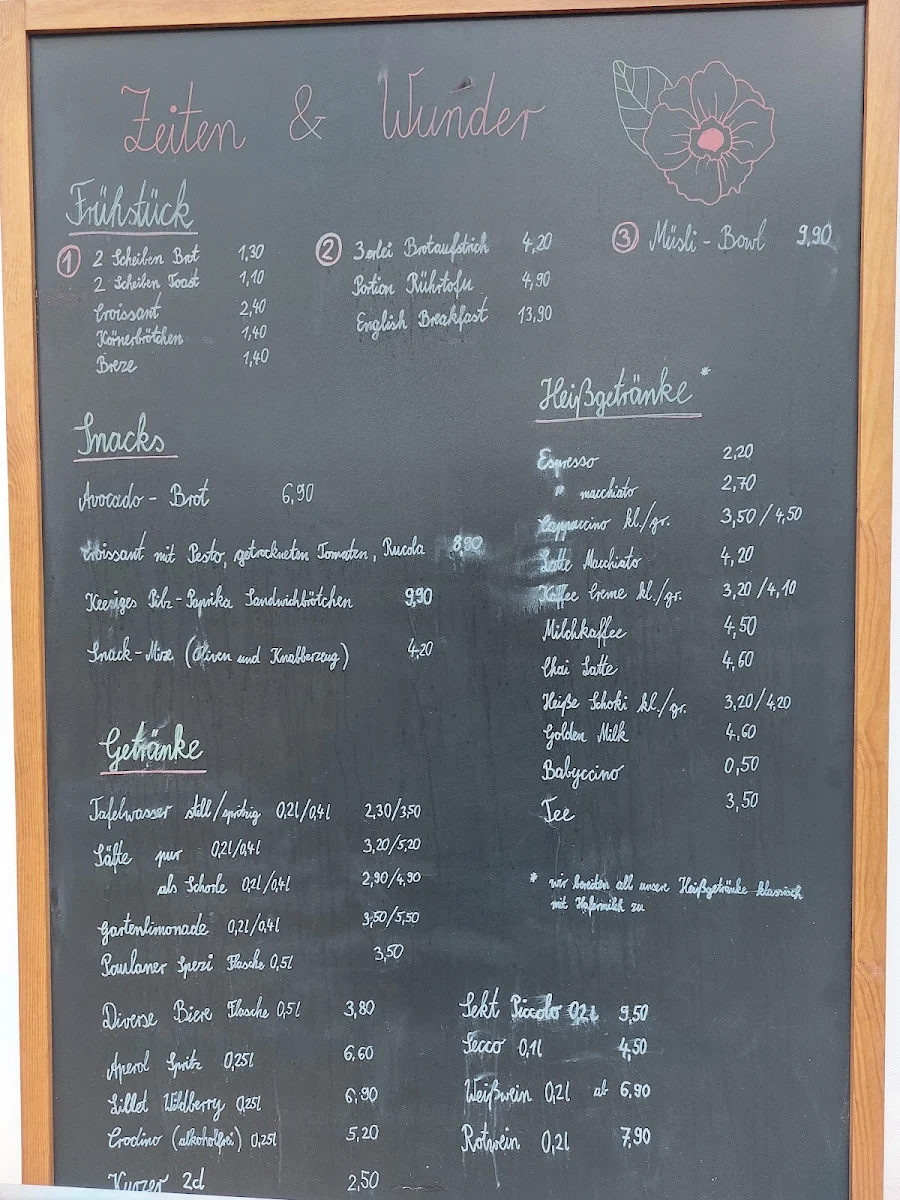 Zeiten & Wunder
Frühstück
① 2 Scheiben Brot 1,30
2 Scheiben Toast 1,10
Croissant 2,40
Körnerbrötchen 1,40
Breze 1,40
② 3erlei Brotaufstrich 4,20
Portion Rührtofu 4,90
English Breakfast 13,90
③ Müsli - Bowl 9,90
Snacks
Avocado - Brot 6,90
Croissant mit Pesto, getrockneten Tomaten, Rucola 8,90
Keesiges Pilz-Paprika Sandwichbrötchen 9,90
Snack-Mix (Oliven und Knabberzeug) 4,20
Heißgetränke *
Espresso 2,20
" macchiato 2,70
Cappuccino kl./gr. 3,50 / 4,50
Latte Macchiato 4,20
Kaffee Creme kl./gr. 3,20 / 4,10
Milchkaffee 4,50
Chai Latte 4,60
Heiße Schoki kl./gr. 3,20/4,20
Golden Milk 4,60
Babyccino 0,50
Tee 3,50
* wir bereiten all unsere Heißgetränke klassisch
mit Hafermilch zu
Getränke
Tafelwasser still/spritzig 0,2l/0,4l 2,30/3,50
Säfte pur 0,2l/0,4l 3,20/5,20
als Schorle 0,2l/0,4l 2,90/4,90
Gartenlimonade 0,2l/0,4l 3,50/5,50
Paulaner Spezi Flasche 0,5l 3,50
Diverse Biere Flasche 0,5l 3,80
Aperol Spritz 0,25l 6,60
Lillet Wildberry 0,25l 6,90
Crodino (alkoholfrei) 0,25l 5,20
Kurzer 2cl 2,50
Sekt Piccolo 0,2l 9,50
Secco 0,1l 4,50
Weißwein 0,2l ab 6,90
Rotwein 0,2l 7,90